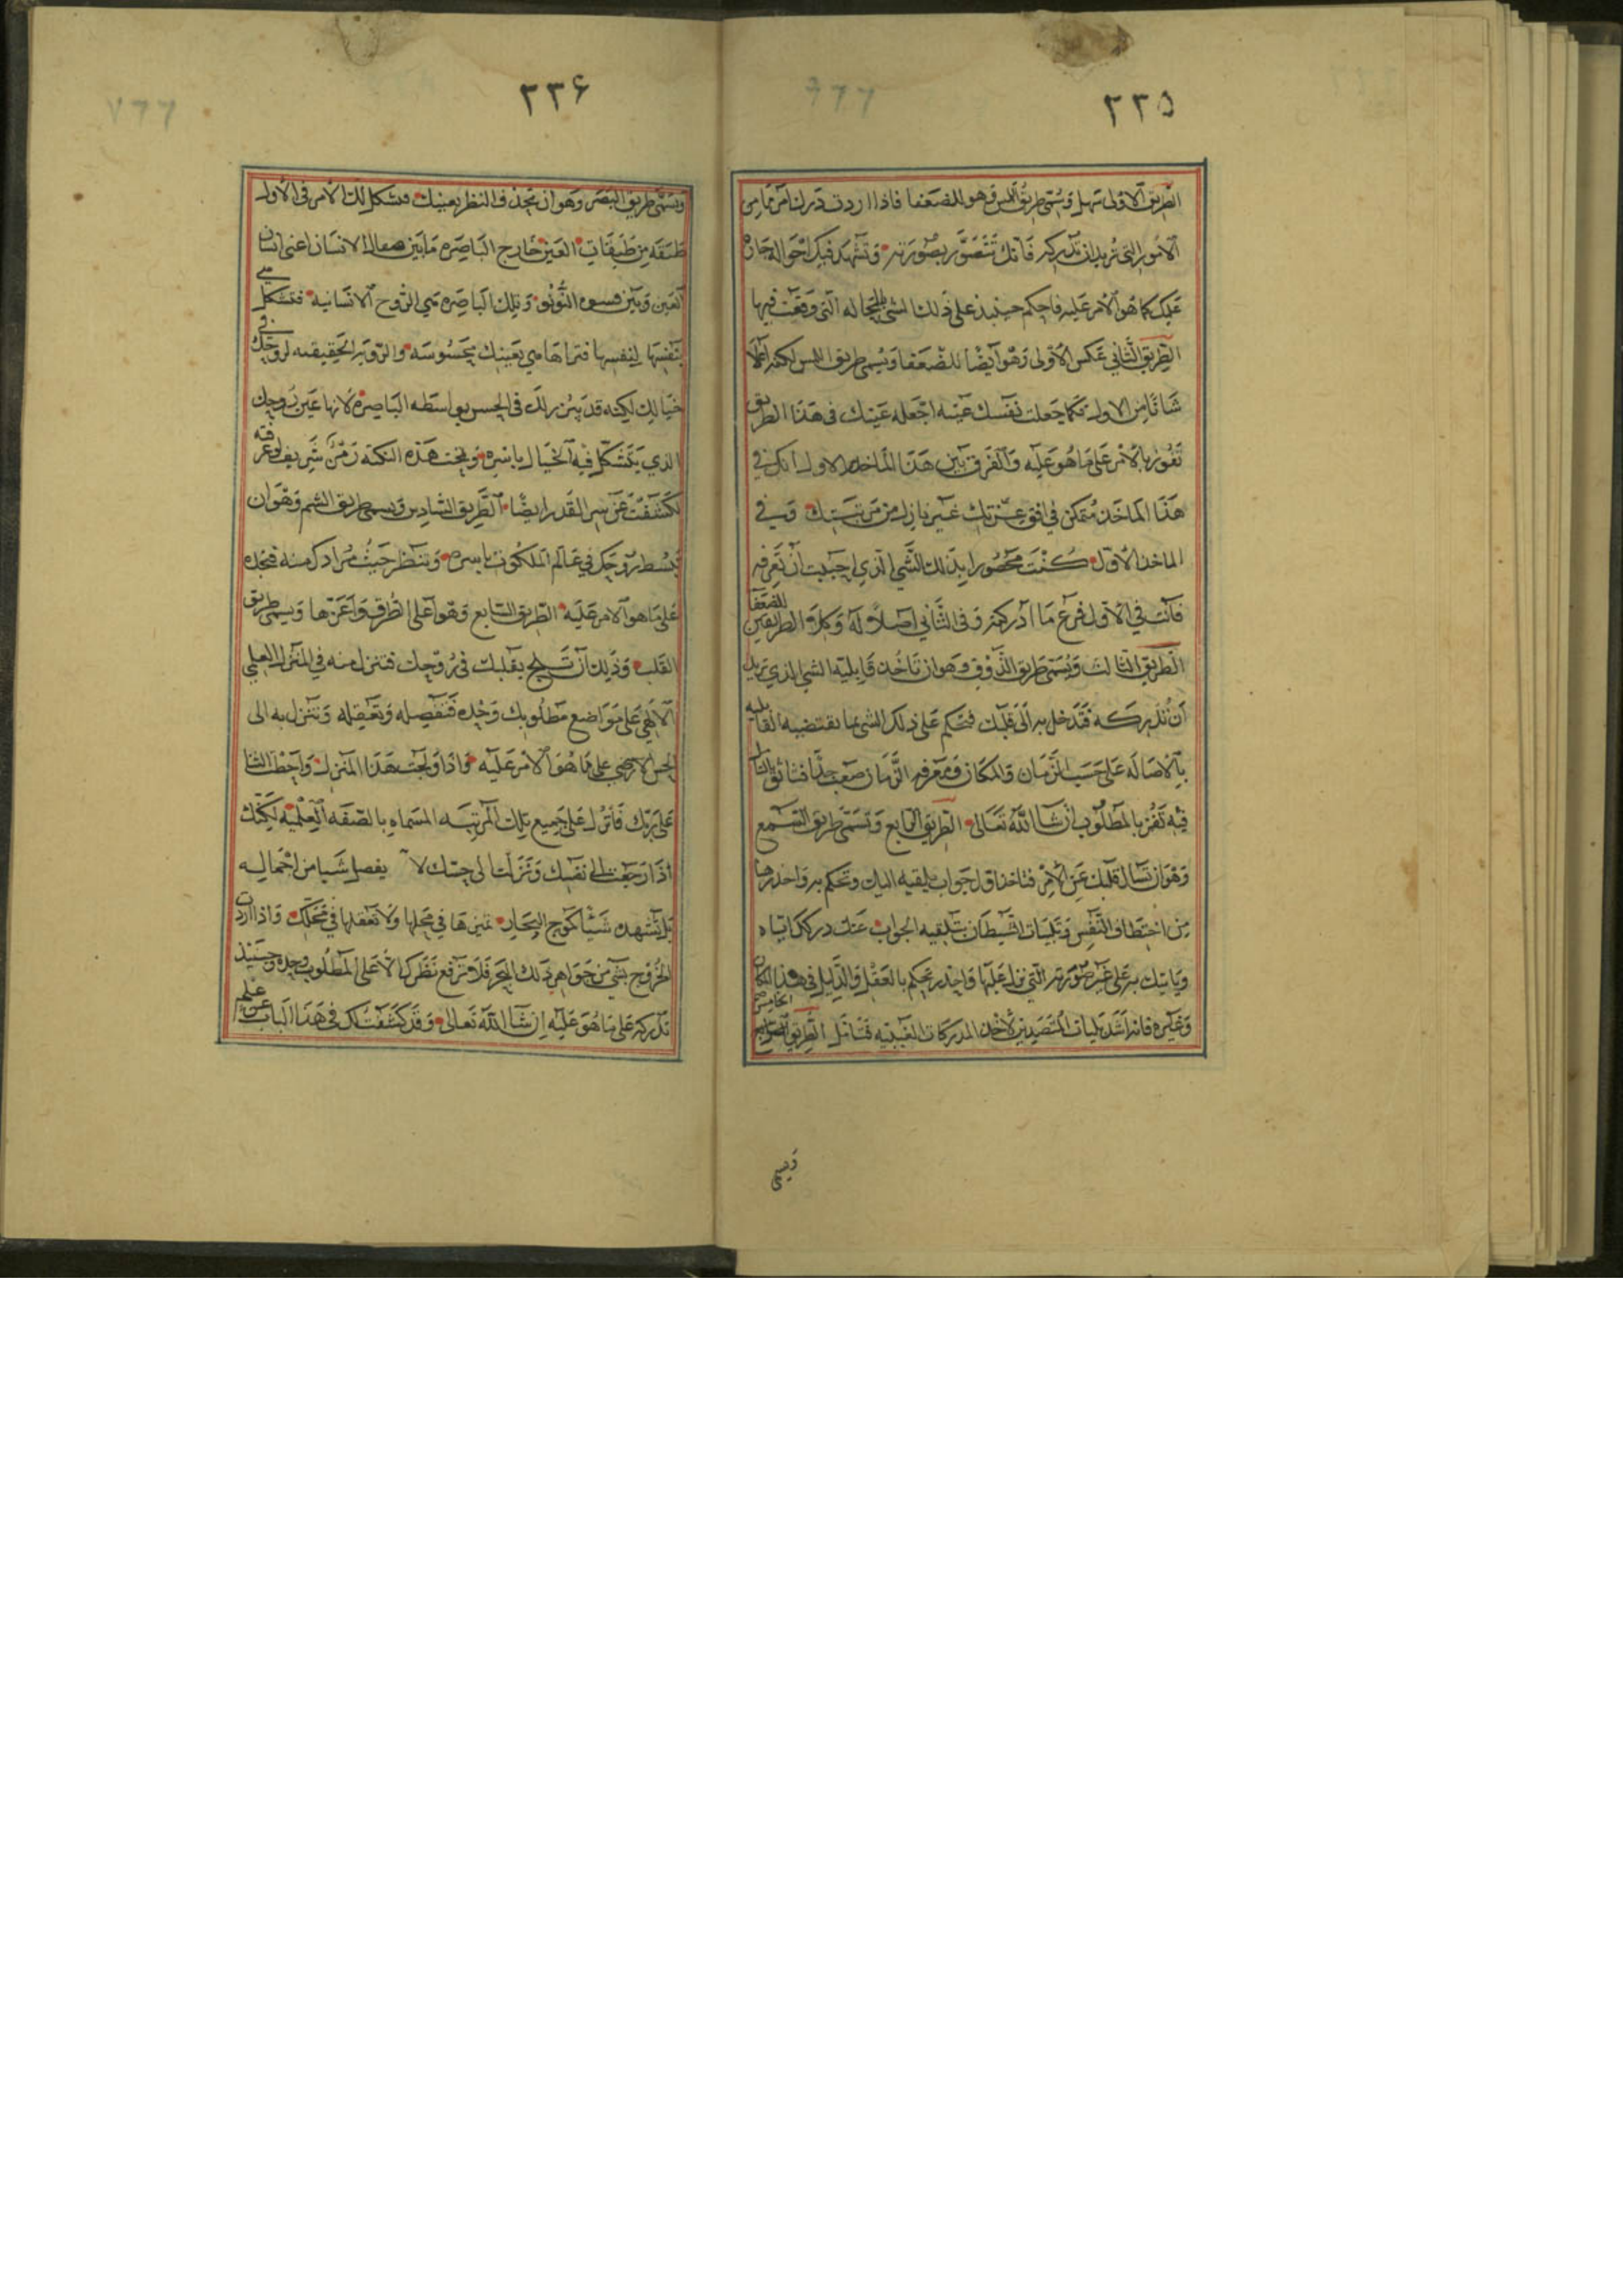 ٢٣٥
الطريق الاولى سهل وتسمى طريق اللمس وهو للضعفا فاذا اردت درك امر ما من
الامور التي تريد ان تدركه فانك تتصور بصورته وتشهد فيك احواله جارة
عليك كما هو الامر عليه فاحكم حينئذ على ذلك الشي بالحاله التي وقعت فيها
الطريق الثاني عكس الاولى وهو ايضا للضعفا ويسمى طريق اللمس لكنه اعلا
شانا من الاول فكما جعلت نفسك عينه اجعله عينك في هذا الطريق
تفوز بالامر على ما هو عليه والفرق بين هذا الماخذ والاول انك في
هذا الماخذ متمكن في افق عزتك غير نازل من مرتبتك وفي
الماخذ الاول كنت محصورا بذلك الشي الذي احببت ان تعرفه
فانت في الاول فرع ما ادركته وفي الثاني اصلا له وكلا الطريقين للضعفا
الطريق الثالث وتسمى طريق الذوق وهو ان تاخذ قابلية الشي الذي تريد
ان تدركه فتدخل به الى قلبك فتحكم على ذلك الشي بما تقتضيه القابليه
بالاصاله على حسب الزمان والمكان ومعرفه الزمان صعب جدا
فيه تفز بالمطلوب ان شا الله تعالى الطريق الرابع وتسمى طريق السمع
وهو ان تسال قلبك عن الامر فتاخذ اول جواب يلقيه اليك وتحكم به واحذرها
من اختطاف النفس وتلبيات الشيطان بتلقيه الجواب عنك دركك اياه
وياتيك به على غير صورته التي نزل عليها واحذر تحكم بالعقل والدليل في هذا المكان
وغيره فانه اشد بليات المتصيدين لاخذ المدركات الغيبيه فتامل الطريق الخامس
ويسمى
٢٣٦
وتسمى طريق البصر وهو ان تجد في النظر بعينك فتشكل لك الامر في الاول
طبقه من طبقات العين خارج الباصره ما بين الانسان اعني انسان
العين وبين وتلك الباصره هي الروح الانسانيه فتتشكل هي
بنفسها لنفسها فتراها هي بعينك محسوسه والرويه الحقيقيه لروحك في
خيالك لكنه قد يبرز لك في الحس بواسطه الباصره لانها عين روحك
الذي يتشكل فيه الخيال باسره وتحت هذه النكته رمز شريف لو عرفته
لكشفت عن سر القدر ايضا الطريق السادس ويسمى طريق الشم وهو ان
تبسط روحك في عالم الملكوت باسره وتنظر حيث مرادك منه فتجده
على ما هو الامر عليه الطريق السابع وهو اعلى الطرق واعزها ويسمى طريق
القلب وذلك ان تلج بقلبك في روحك فتنزل منه في المنزل العلمي
الالهي على مواضع مطلوبك وحده فتفصله وتعقله وتنزل به الى
الحس الارضي على ما هو الامر عليه واذا ولجت هذا المنزل واحطت
على ربك فانزل على جميع تلك المرتبه المسماه بالصفه العلميه لكنك
اذا رجعت الى نفسك وتنزلت الى حسك لا يفصل شيا من اجماله
بل تشهده شيئا كموج البحار تميزها في محلها ولا تعقلها في محلك واذا اردت
الخروج بشي من جواهر ذلك البحر فلا ترفع نظرك الا على المطلوب وحده وحينئذ
تدركه على ما هو عليه ان شا الله تعالى وقد كشفت لك في هذا الباب عن علم